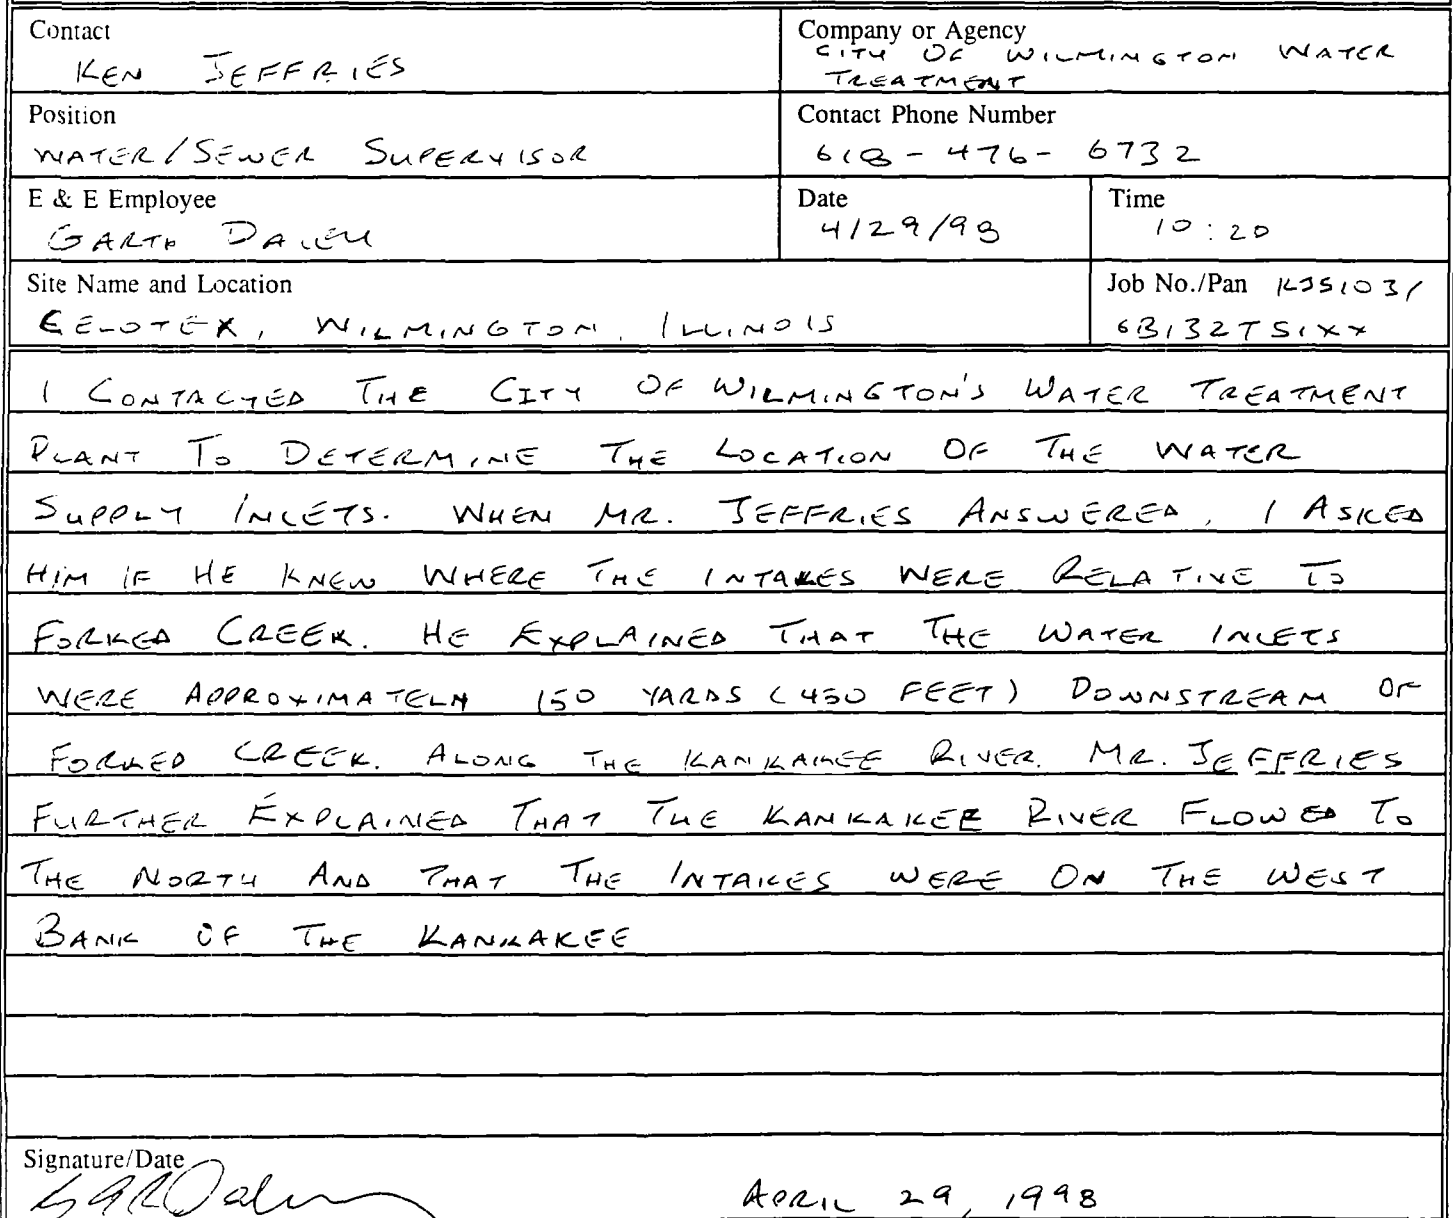 Contact
KEN JEFFRIES
Company or Agency
CITY OF WILMINGTON WATER
TREATMENT
Position
WATER/SEWER SUPERVISOR
Contact Phone Number
618-476-6732
E & E Employee
GARTH
Date
4/29/98
Time
10:20
Site Name and Location
CELOTEX, WILMINGTON, ILLINOIS
Job No./Pan KJS103/
6B132TS1XX
I CONTACTED THE CITY OF WILMINGTON'S WATER TREATMENT
PLANT TO DETERMINE THE LOCATION OF THE WATER
SUPPLY INLETS. WHEN MR. JEFFRIES ANSWERED, I ASKED
HIM IF HE KNEW WHERE THE INTAKES WERE RELATIVE TO
FORKED CREEK. HE EXPLAINED THAT THE WATER INLETS
WERE APPROXIMATELY 150 YARDS (450 FEET) DOWNSTREAM OF
FORKED CREEK. ALONG THE KANKAKEE RIVER. MR. JEFFRIES
FURTHER EXPLAINED THAT THE KANKAKEE RIVER FLOWED TO
THE NORTH AND THAT THE INTAKES WERE ON THE WEST
BANK OF THE KANKAKEE
Signature/Date
APRIL 29, 1998